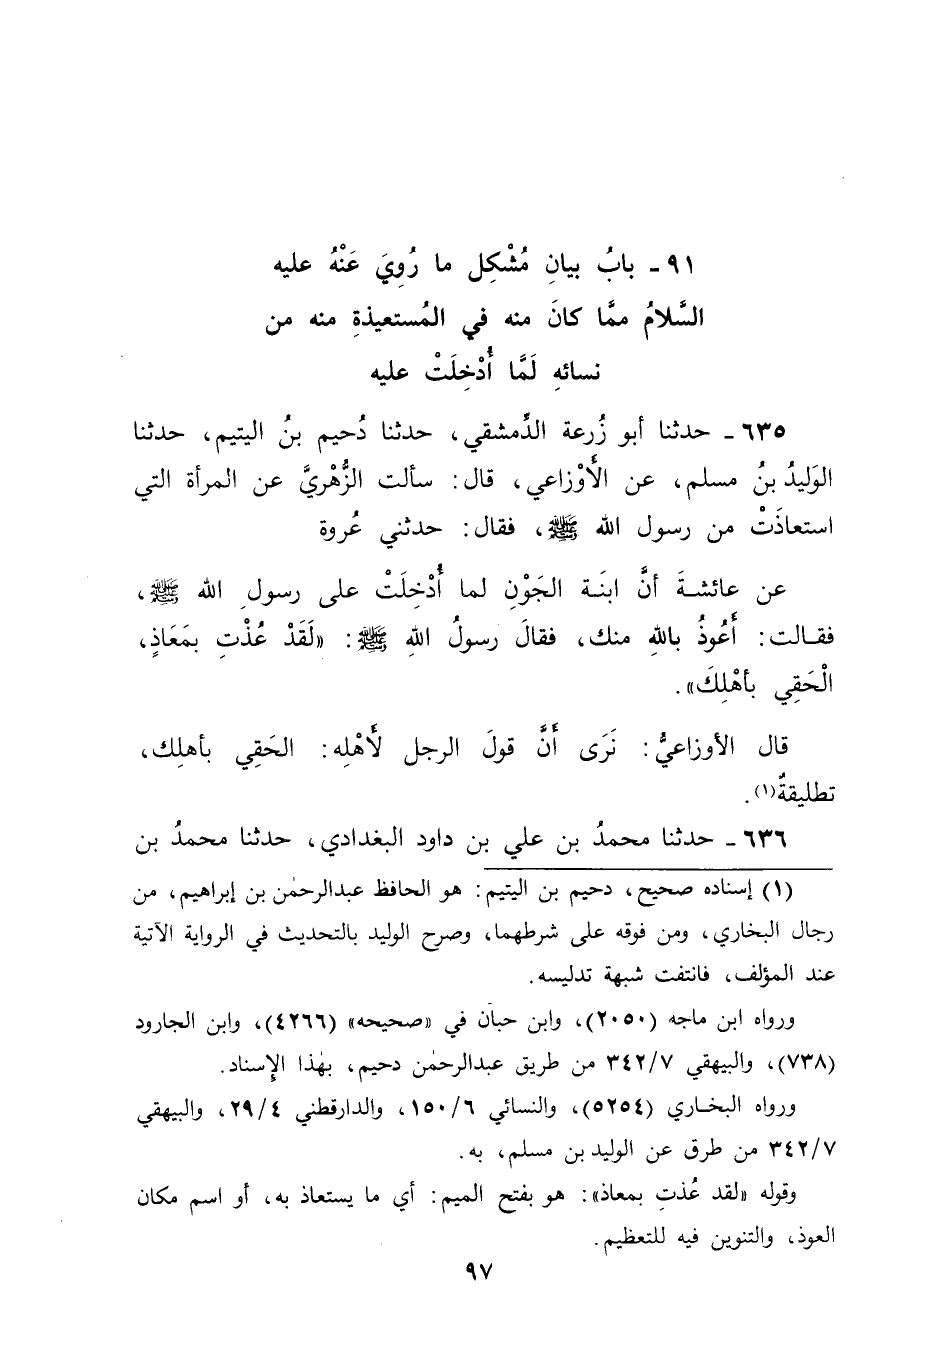 ٩١ - بابُ بيانِ مُشْكِل ما رُوِيَ عَنْهُ عليه
السَّلامُ ممَّا كانَ منه في المُستعيذةِ منه من
نسائهِ لَمَّا أُدْخِلَتْ عليه
٦٣٥ - حدثنا أبو زُرعة الدِّمشقي، حدثنا دُحيم بنُ اليتيم، حدثنا
الوَليدُ بنُ مسلم، عن الأَوْزاعي، قال: سألت الزُّهْريَّ عن المرأة التي
استعاذَتْ من رسول الله ﷺ، فقال: حدثني عُروة
عن عائشةَ أنَّ ابنَة الجَوْنِ لما أُدْخِلَتْ على رسولِ الله ﷺ،
فقالت: أَعُوذُ باللهِ منك، فقالَ رسولُ اللهِ ﷺ: «لَقَدْ عُذْتِ بمَعَاذٍ،
الْحَقِي بأهْلِكَ».
قال الأوزاعيُّ: نَرَى أَنَّ قولَ الرجل لأَهْلِه: الحَقِي بأهلِك،
تطليقةٌ(١).
٦٣٦ - حدثنا محمدُ بن علي بن داود البغدادي، حدثنا محمدُ بن
(١) إسناده صحيح، دحيم بن اليتيم: هو الحافظ عبدالرحمٰن بن إبراهيم، من
رجال البخاري، ومن فوقه على شرطهما، وصرح الوليد بالتحديث في الرواية الآتية
عند المؤلف، فانتفت شبهة تدليسه.
ورواه ابن ماجه (٢٠٥٠)، وابن حبان في «صحيحه» (٤٢٦٦)، وابن الجارود
(٧٣٨)، والبيهقي ٣٤٢/٧ من طريق عبدالرحمٰن دحيم، بهٰذا الإسناد.
ورواه البخاري (٥٢٥٤)، والنسائي ١٥٠/٦، والدارقطني ٢٩/٤، والبيهقي
٣٤٢/٧ من طرق عن الوليد بن مسلم، به.
وقوله «لقد عُذتِ بمعاذ»: هو بفتح الميم: أي ما يستعاذ به، أو اسم مكان
العوذ، والتنوين فيه للتعظيم.
٩٧